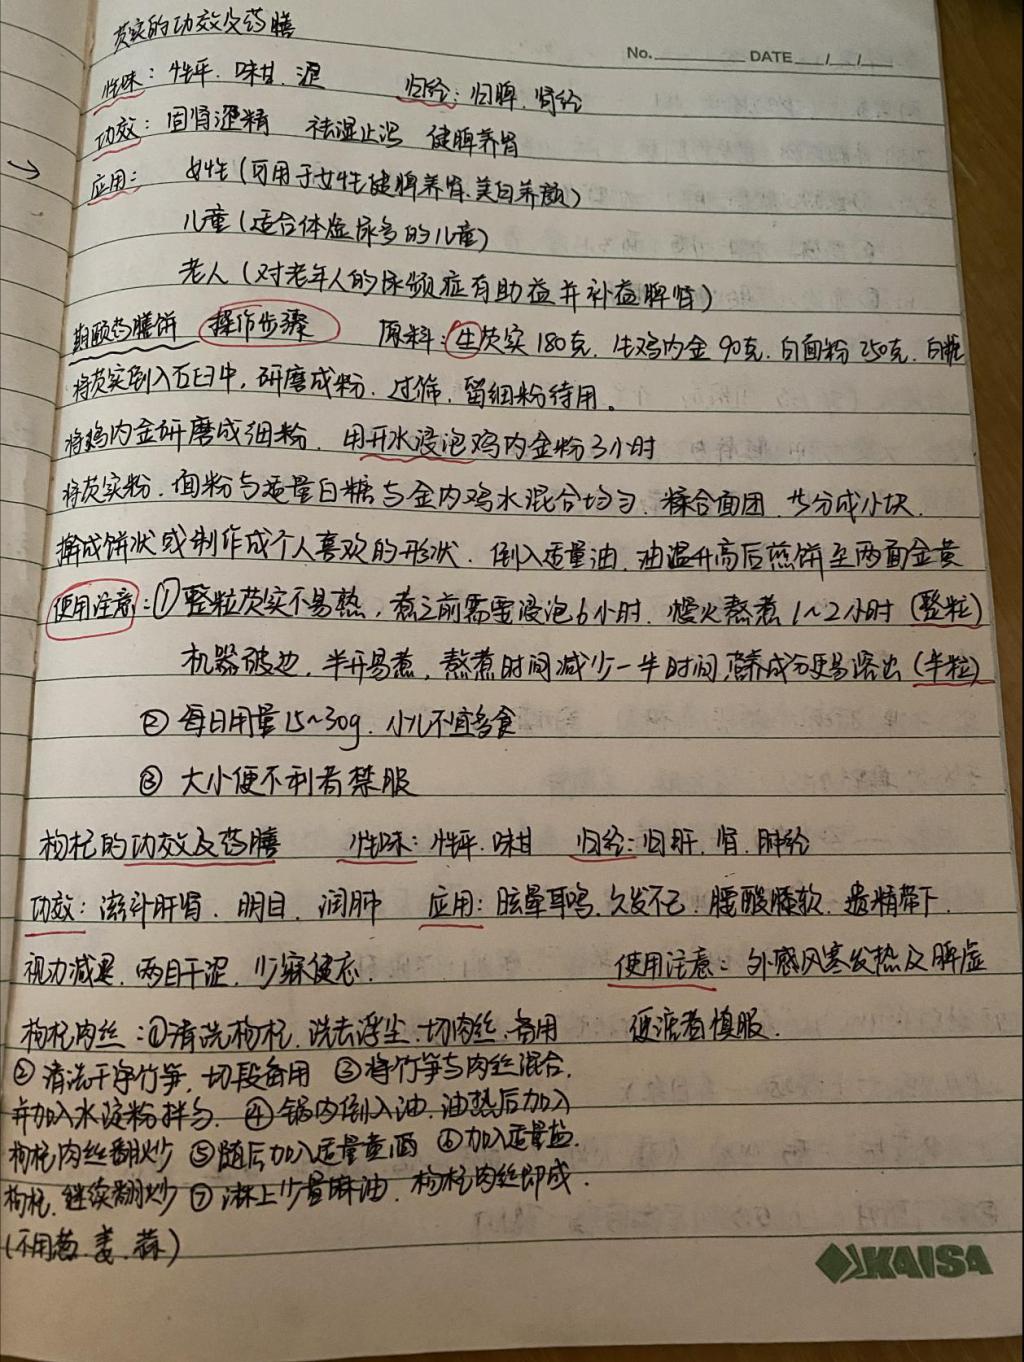 芡实的功效及药膳
No. DATE / /
性味：性平.味甘.涩 归经：归脾.肾经
功效：固肾涩精 祛湿止泻 健脾养胃
应用： 女性(可用于女性健脾养胃.美白养颜)
儿童(适合体虚尿多的儿童)
老人(对老年人的尿频症有助益并补益脾肾)
期颐药膳饼 操作步骤 原料：生芡实180克.生鸡内金90克.白面粉250克.白糖
将芡实倒入石臼中，研磨成粉.过筛.留细粉待用。
将鸡内金研磨成细粉.用开水浸泡鸡内金粉3小时
将芡实粉.面粉与适量白糖与金内鸡水混合均匀.糅合面团.分成小块.
擀成饼状或制作成个人喜欢的形状.倒入适量油.油温升高后煎饼至两面金黄
使用注意：①整粒芡实不易熟，煮之前需要浸泡6小时.慢火熬煮1~2小时(整粒)
机器破边.半开易煮，熬煮时间减少一半时间,营养成分更易溶出(半粒)
②每日用量15~30g.小儿不宜多食
③大小便不利者禁服
枸杞的功效及药膳 性味：性平.味甘 归经：归肝.肾.肺经
功效：滋补肝肾.明目.润肺 应用：眩晕耳鸣.久发不已.腰酸膝软.遗精带下.
视力减退.两目干涩.少寐健忘. 使用注意：外感风寒发热及脾虚
枸杞肉丝：①清洗枸杞.洗去浮尘.切肉丝.备用 便溏者慎服.
②清洗干净竹笋.切段备用 ③将竹笋与肉丝混合.
并加入水淀粉拌匀.④锅内倒入油.油热后加入
枸杞肉丝翻炒 ⑤随后加入适量黄酒 ⑥加入适量盐.
枸杞.继续翻炒 ⑦淋上少量麻油.枸杞肉丝即成.
(不用葱.姜.蒜)
KAISA